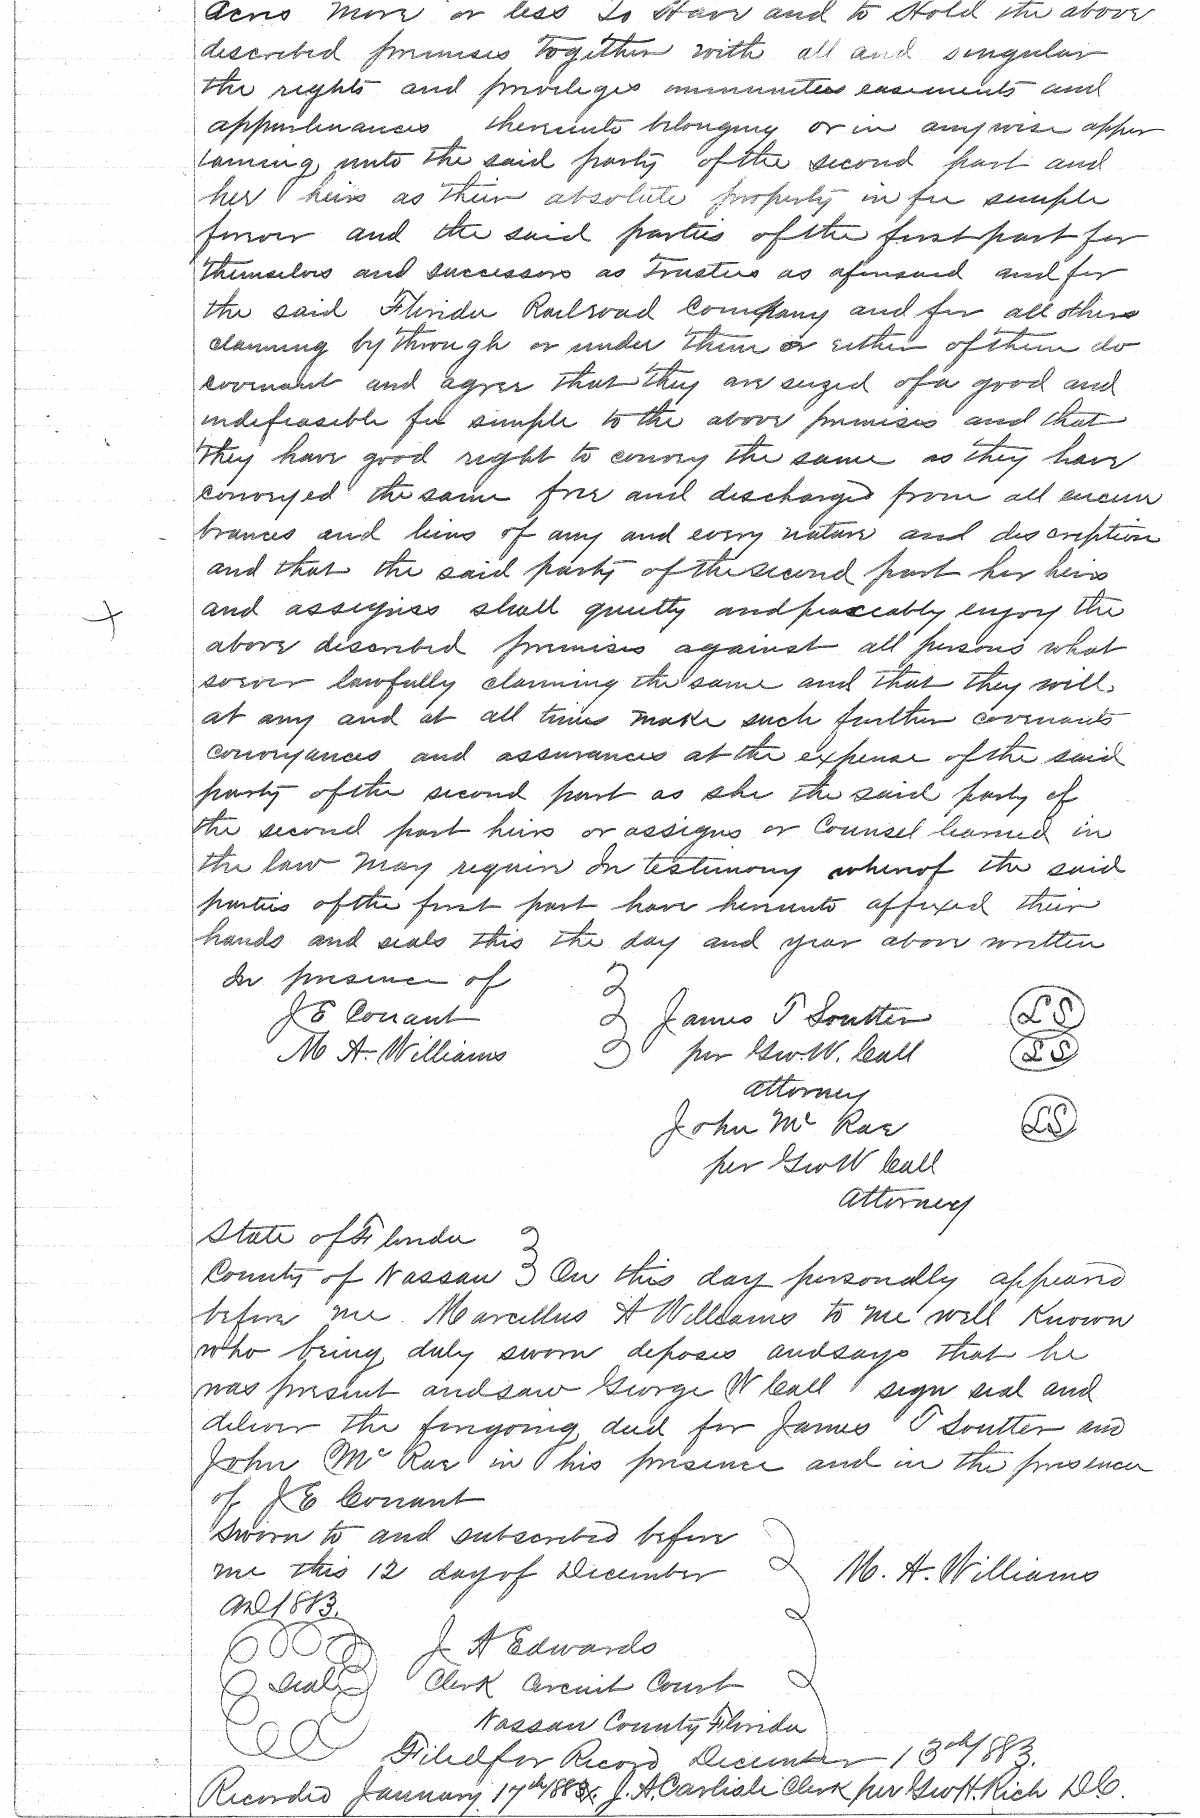 Acres more or less To Have and to Hold the above
described premises together with all and singular
the rights and privileges immunities easements and
appurtenances thereunto belonging or in anywise apper
taining unto the said party of the second part and
her heirs as their absolute property in fee simple
forever and the said parties of the first part for
themselves and successors as Trustees as aforesaid and for
the said Florida Railroad Company and for all others
claiming by through or under them or either of them do
covenant and agree that they are seized of a good and
indefeasible fee simple to the above premises and that
they have good right to convey the same as they have
conveyed the same free and discharged from all encum
brances and liens of any and every nature and description
and that the said party of the second part her heirs
and assigns shall quietly and peaceably enjoy the
above described premises against all persons what
soever lawfully claiming the same and that they will
at any and at all times make such further covenants
conveyances and assurances at the expense of the said
party of the second part as she the said party of
the second part heirs or assigns or Counsel learned in
the law may require In testimony whereof the said
parties of the first part have hereunto affixed their
hands and seals this the day and year above written
In presence of
J E Conant James T Soutter LS
M A. Williams per Geo. W. Call LS
Attorney
John Mc Rae LS
per Geo W Call
Attorney
State of Florida
County of Nassau On this day personally appeared
before me Marcellus A Williams to me well known
who being duly sworn deposes and says that he
was present and saw George W Call sign seal and
deliver the foregoing deed for James T Soutter and
John Mc Rae in his presence and in the presence
of J E Conant
Sworn to and subscribed before
me this 12 day of December M. A. Williams
AD 1883.
J A Edwards
Seal Clerk Circuit Court
Nassau County Florida
Filed for Record December 13th 1883.
Recorded January 17th 1884. J. A. Carlisle Clerk per Geo H. Rich D.C.